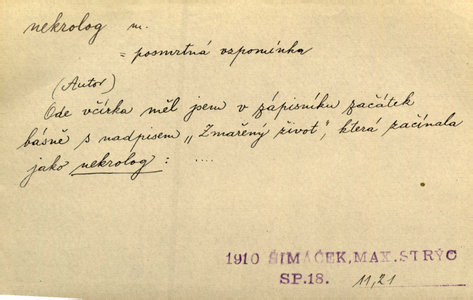 nekrolog m.
= posmrtná vzpomínka
(Autor)
Ode včírka měl jsem v zápisníku začátek
básně s nadpisem „Zmařený život", která začínala
jako nekrolog : ....
1910 ŠIMÁČEK, MAX. STRÝC
SP.18. 11,21